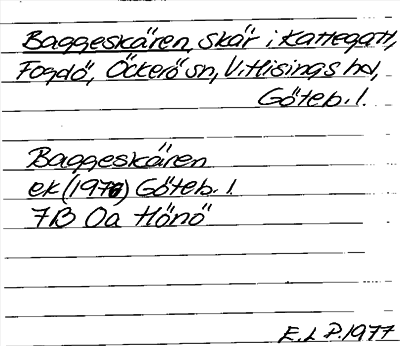 Baggeskären, skär i Kattegatt,
Fogdö, Öckerö sn, V. Hisings hd,
Göteb. l.
Baggeskären
ek (1976) Göteb. l.
7B 0a Hönö
E.L P. 1977